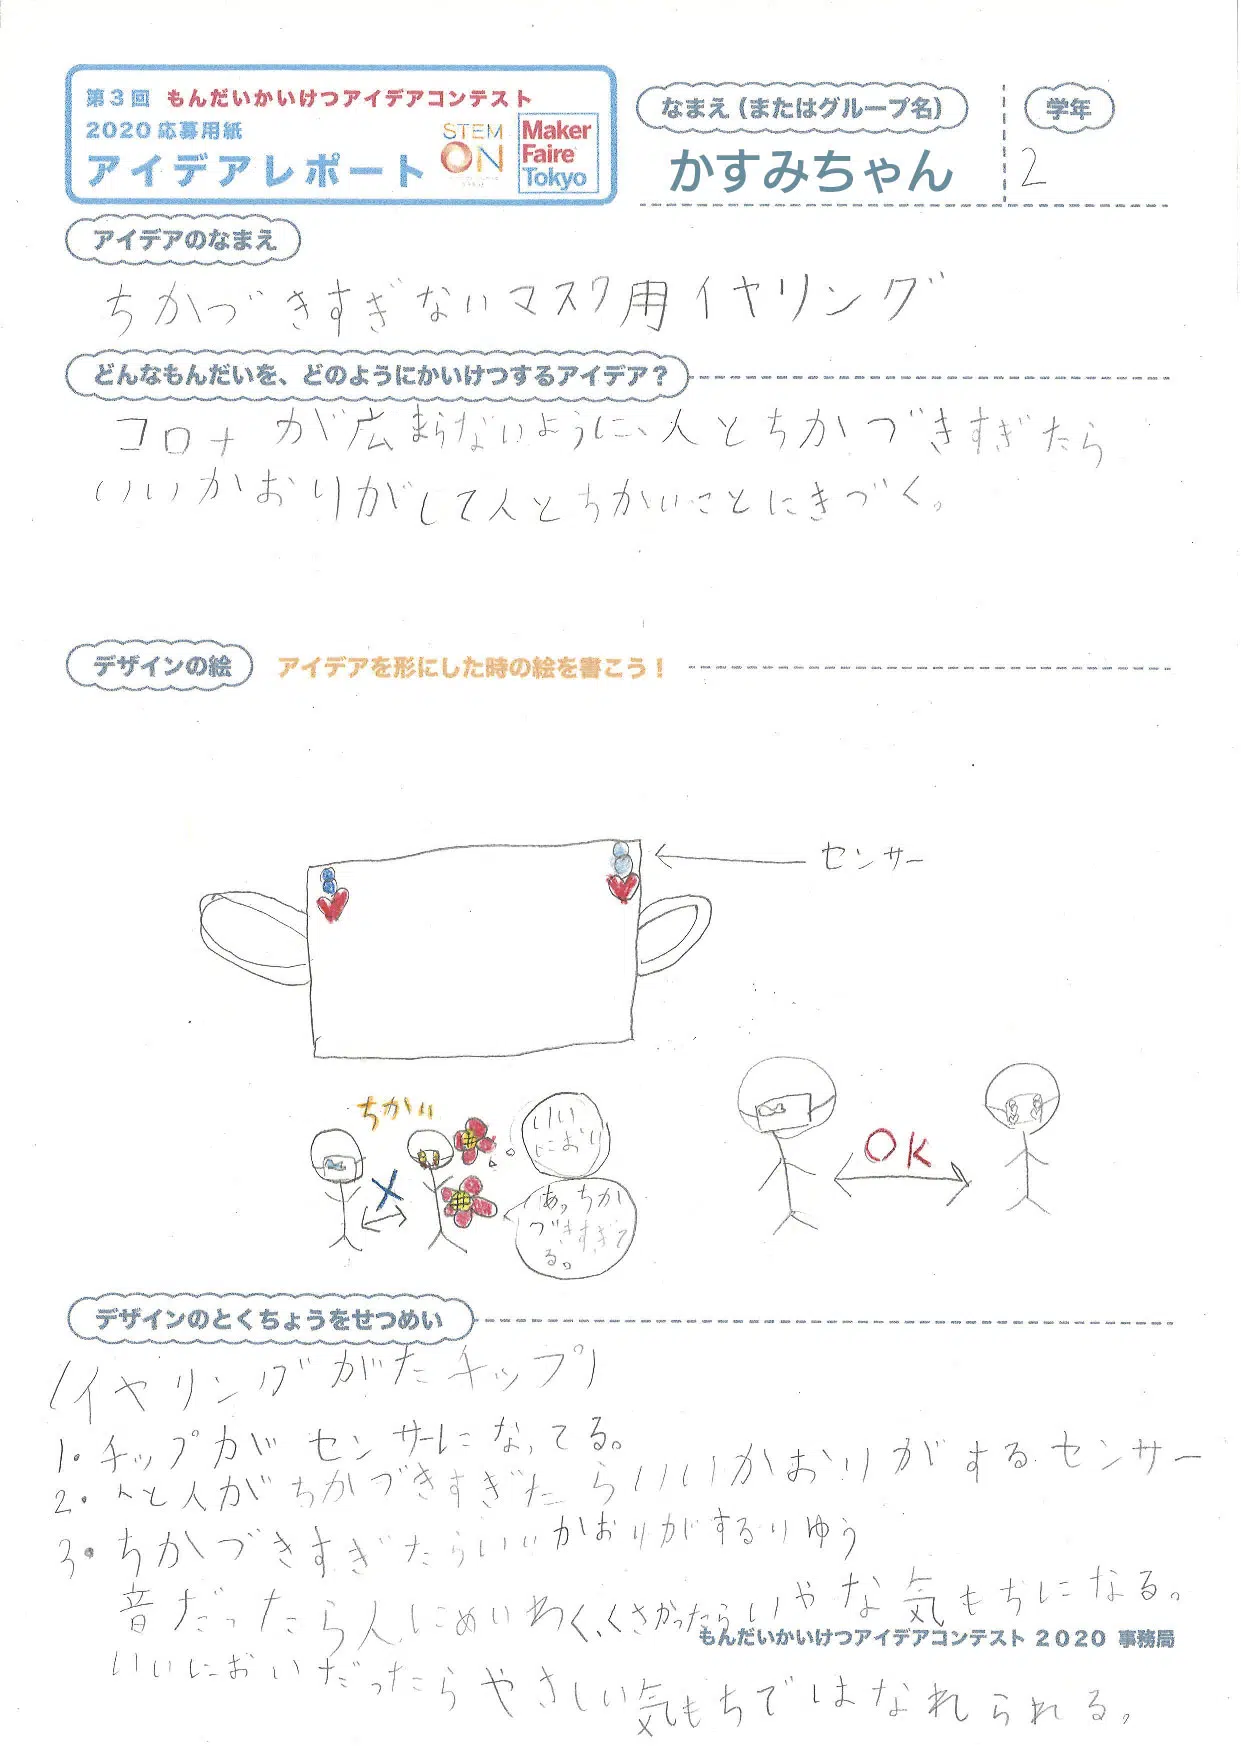 第3回 もんだいかいけつアイデアコンテスト
2020応募用紙
アイデアレポート
STEM
ON
Maker
Faire
Tokyo
なまえ(またはグループ名)
学年
かすみちゃん
2
アイデアのなまえ
ちかづきすぎないマスク用イヤリング
どんなもんだいを、どのようにかいけつするアイデア?
コロナが広まらないように、人とちかづきすぎたら
いいかおりがして人とちかいことにきづく。
デザインの絵
アイデアを形にした時の絵を書こう!
センサー
ちかい
いい
におい
あっちか
づきすぎて
る。
OK
デザインのとくちょうをせつめい
(イヤリングがたチップ)
1.チップがセンサーになってる。
2.人と人がちかづきすぎたらいいかおりがするセンサー
3.ちかづきすぎたらいいかおりがするりゆう
音だったら人にめいわく、くさかったらいやな気もちになる。
もんだいかいけつアイデアコンテスト 2020 事務局
いいにおいだったらやさしい気もちではなれられる。